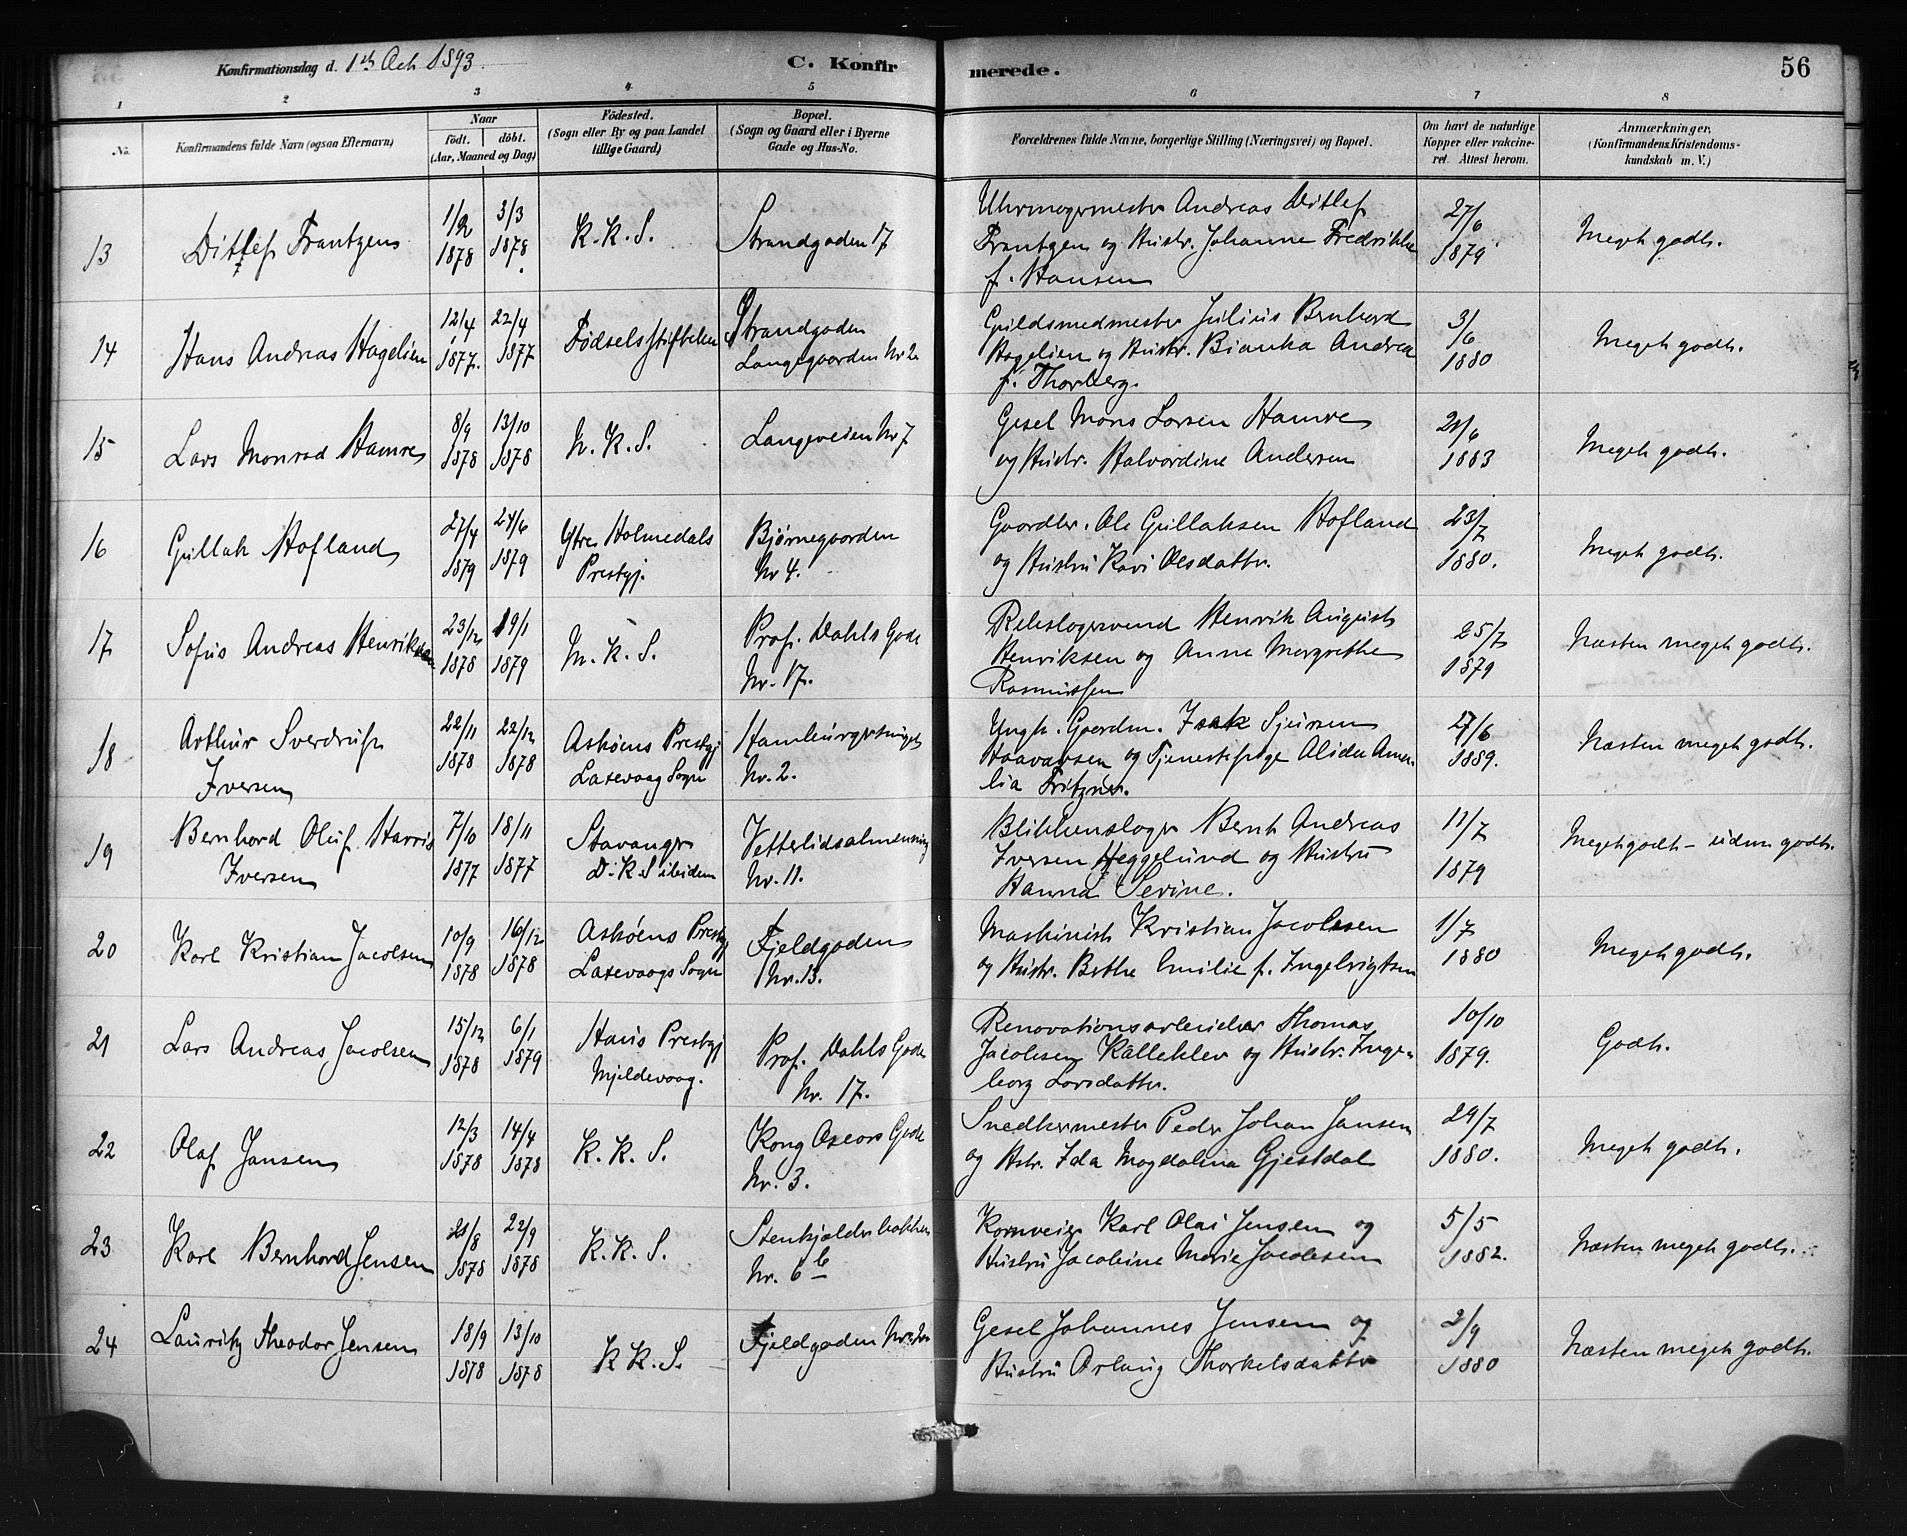 Konfirmationsdag d. 1ste Oct 1893. C. Konfirmerede. 56
1 2 3 4 5 6 7 8
No. Konfirmandens fulde Navn (ogsaa Efternavn) Naar födt. döbt. (Aar, Maaned og Dag) Födested. (Sogn eller By og paa Landet tillige Gaard) Bopæl. (Sogn og Gaard eller i Byerne Gade og Hus-No. Forældrenes fulde Navne, borgerlige Stilling (Næringsvei) og Bopæl. Om havt de naturlige Kopper eller vakcineret. Attest herom. Anmærkninger. (Konfirmandens Kristendomskundskab m. V.)
13 Ditlef Frantzen 1/2 1878 3/3 1878. K. K. S. Strandgaden 17
Uhrmagermester Andreas Ditlef
Frantzen og Hustr. Johanne Fredrikke
f. Hansen
27/6 1879 Meget godt.
14 Hans Andreas Hagelien 12/4 1877. 22/4 1877 Fødselsstiftelsen Strandgaden
Langegaarden Nr 2
Guldsmedmester Julius Bernhard
Hagelien og Hustr. Bianka Andrea
f. Thorberg.
3/6 1880 Meget godt.
15 Lars Monrad Hamre 8/9 1878 13/10 1878 N. K. S. Langeveien Nr 7
Gesel Mons Larsen Hamre
og Hustr. Halvardine Andersen
21/6 1883 Meget godt.
16 Gullak Hofland 27/4 1879 24/6 1879 Ytre Holmedals
Prestgj.
Bjørnegaarden
Nr 4.
Gaardbr. Ole Gullaksen Hofland
og Hustru Kari Olesdatter.
23/7 1880. Meget godt.
17 Sofus Andreas Henriksen 23/12 1878 19/1 1879 N. K. S. Prof. Dahls Gade
Nr. 17.
Rebslagersvend Henrik August
Henriksen og Anne Margrethe
Rasmussen
25/7 1879 Næsten meget godt.
18 Arthur Sverdrup
Iversen
22/11 1878 22/12 1878 Askøens Prestgj
Laxevaag Sogn
Hamburgersmuget
Nr. 2.
Ungk. Gaardm. Isak Sjursen
Haavardsen og Tjenestepige Alida Ama-
lia Fritzner.
27/6 1889. Næsten meget godt.
19 Bernhard Oluf Harris
Iversen
7/10 1877 18/11 1877 Stavanger
D. K. S ibidem
Vetterlidsalmenning
Nr. 11.
Blikkenslager Bernt Andreas
Iversen Heggelund og Hustru
Hanna Sevine.
11/7 1879 Meget godt - uden godt.
20 Karl Kristian Jacobsen 10/9 1878 16/12 1878 Askøens Prestgj
Laxevaags Sogn
Fjeldgaden
Nr. 13.
Maskinist Kristian Jacobsen
og Hustr. Berthe Emilie f. Ingebrigtsen
1/7 1880 Meget godt.
21 Lars Andreas Jacobsen 15/12 1878 6/1 1879 Haus Prestgj
Mjeldevaag.
Prof. Dahls Gade
Nr. 17.
Renovationsarbeider Thomas
Jacobsen Kalleklev og Hustr. Inge-
borg Larsdatter.
10/10 1879. Godt.
22 Olaf Jansen 12/3 1878 14/4 1878 K. K. S. Kong Oscars Gade
Nr. 3.
Snedkermester Peder Johan Jansen
og Hstr. Ida Magdalina Gjestdal
29/7 1880. Meget godt.
23 Karl Bernhard Jensen 21/8 1878 22/9 1878 K. K. S. Stenkjelderbakken
Nr. 6 b
Kornveier Karl Olai Jensen og
Hustru Jacobine Marie Jacobsen
5/5 1882. Næsten meget godt.
24 Lauritz Theodor Jensen 18/9 1878 13/10 1878 K K. S. Fjeldgaden
Gesel Johannes Jensen og
Hustru Arlaug Thorkelsdatter
2/9 1880 Næsten meget godt.